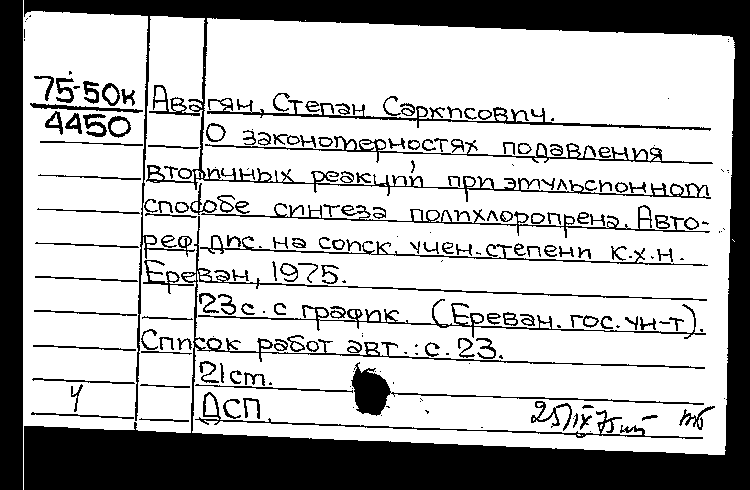 75-50к
4450
Авагян, Степан Саркисович.
О закономерностях подавления
вторичных реакций при эмульсионном
способе синтеза полихлоропрена. Авто-
реф. дис. на соиск. учен. степени к.х.н.
Ереван, 1975.
23 с. с график. (Ереван. гос. ун-т).
Список работ авт.: с. 23.
21 см.
ДСП.
25/IX 75